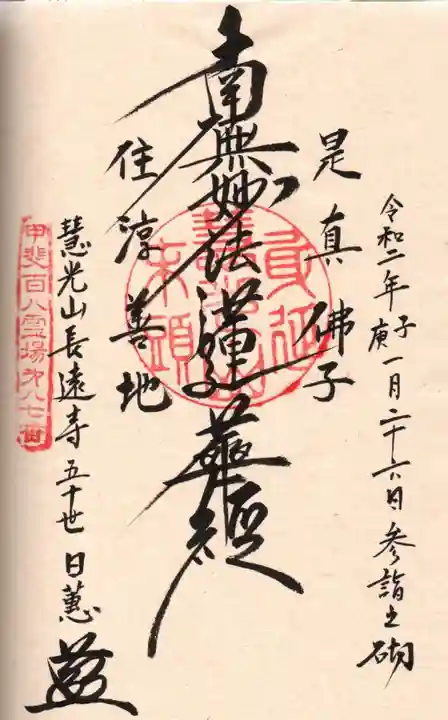 令和二年庚子一月二十六日参詣之砌
是真佛子
南無妙法蓮華経
住淳善地
慧光山長遠寺五十世日蕙
甲斐百八霊場第八七番
身延
末頭